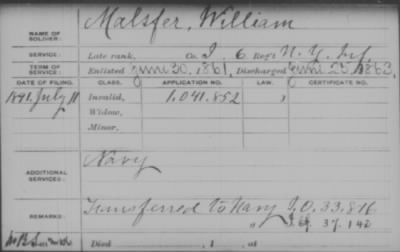 NAME OF SOLDIER: Malsfer, William
SERVICE: Late rank, Co. I, 6 Reg't N. Y. Inf.
TERM OF SERVICE: Enlisted June 30, 1861, Discharged June 25, 1863
DATE OF FILING. CLASS. APPLICATION NO. LAW. CERTIFICATE NO.
1891, July 11 Invalid, 1,041,852
Widow,
Minor,
ADDITIONAL SERVICES: Navy
REMARKS: Transferred to Navy I.O. 33,816
" 37,142
Died , 1 , at